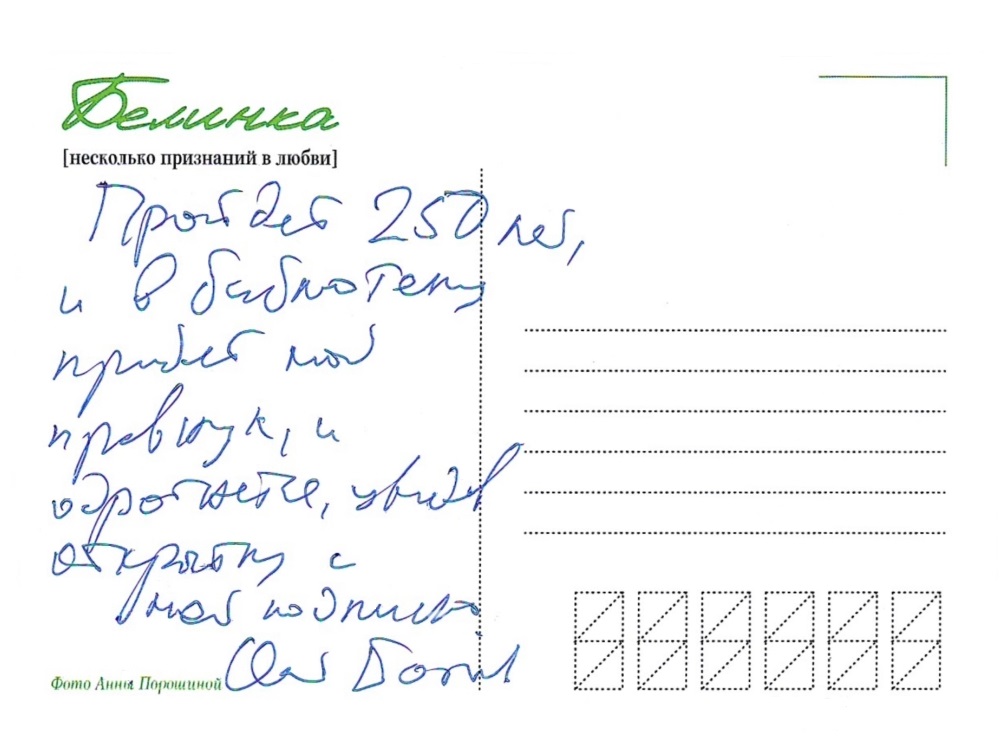 Белинка
[несколько признаний в любви]
Пройдет 250 лет,
и в библиотеку
придет мой
правнук, и
увидев
открытку с
моей подписью
Фото Анны Порошиной